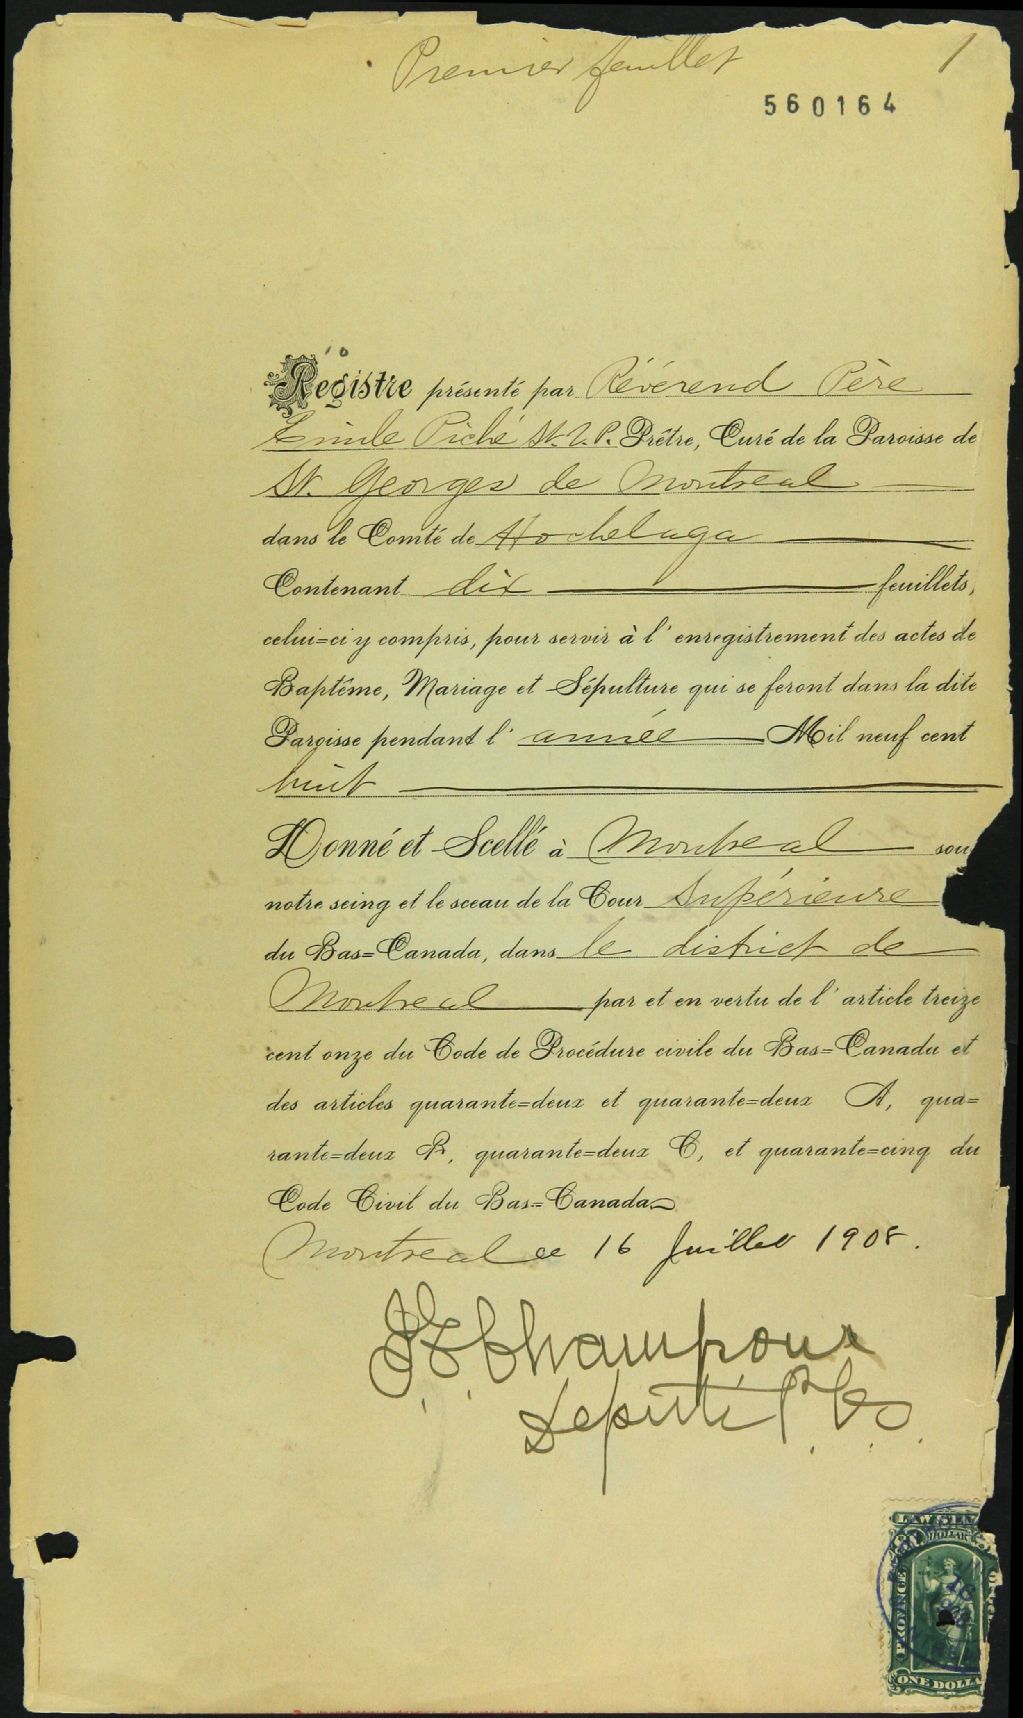 Premier feuillet 1
560164
Registre présenté par Révérend Père
Emile Piché St. V. P. Prêtre, Curé de la Paroisse de
St. Georges de Montreal
dans le Comté de Hochelaga
Contenant dix feuillets,
celui=ci y compris, pour servir à l'enregistrement des actes de
Baptême, Mariage et Sépulture qui se feront dans la dite
Paroisse pendant l'année Mil neuf cent
huit
Donné et Scellé à Montreal sou
notre seing et le sceau de la Cour Supérieure
du Bas=Canada, dans le district de
Montreal par et en vertu de l'article treize
cent onze du Code de Procédure civile du Bas=Canada et
des articles quarante=deux et quarante=deux A, qua=
rante=deux B, quarante=deux C, et quarante=cinq du
Code Civil du Bas=Canada
Montreal ce 16 Juillet 1908.
Champoux
Député P. C. S.
LAW STA
DOLLAR
PROVINCE
16
ONE DOLLA